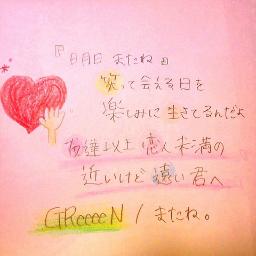 『明日 またね』
笑って会える日を
楽しみに 生きてるんだよ
友達以上 恋人未満の
近いけど 遠い 君へ
GReeeeN / またね。